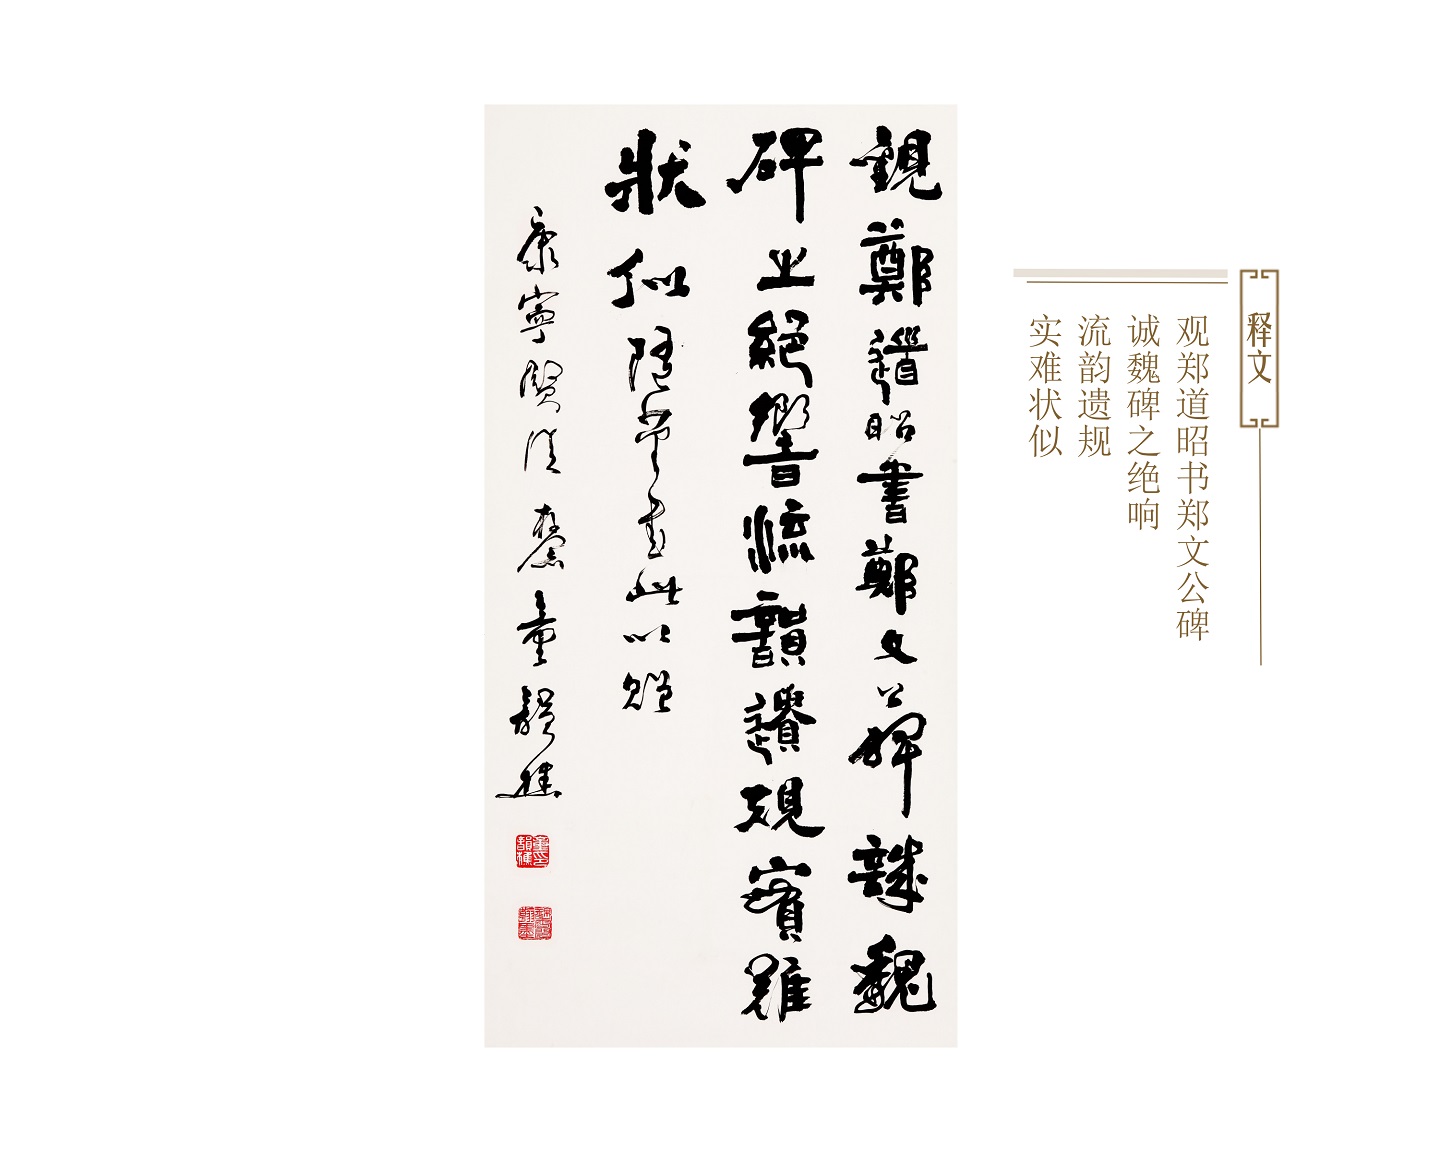 释文
观郑道昭书郑文公碑
诚魏碑之绝响
流韵遗规
实难状似
觀鄭道昭書鄭文公碑誠魏
碑之絕響流韻遺規實難
狀似 此以贈
康寧賢侄存念童韻樵